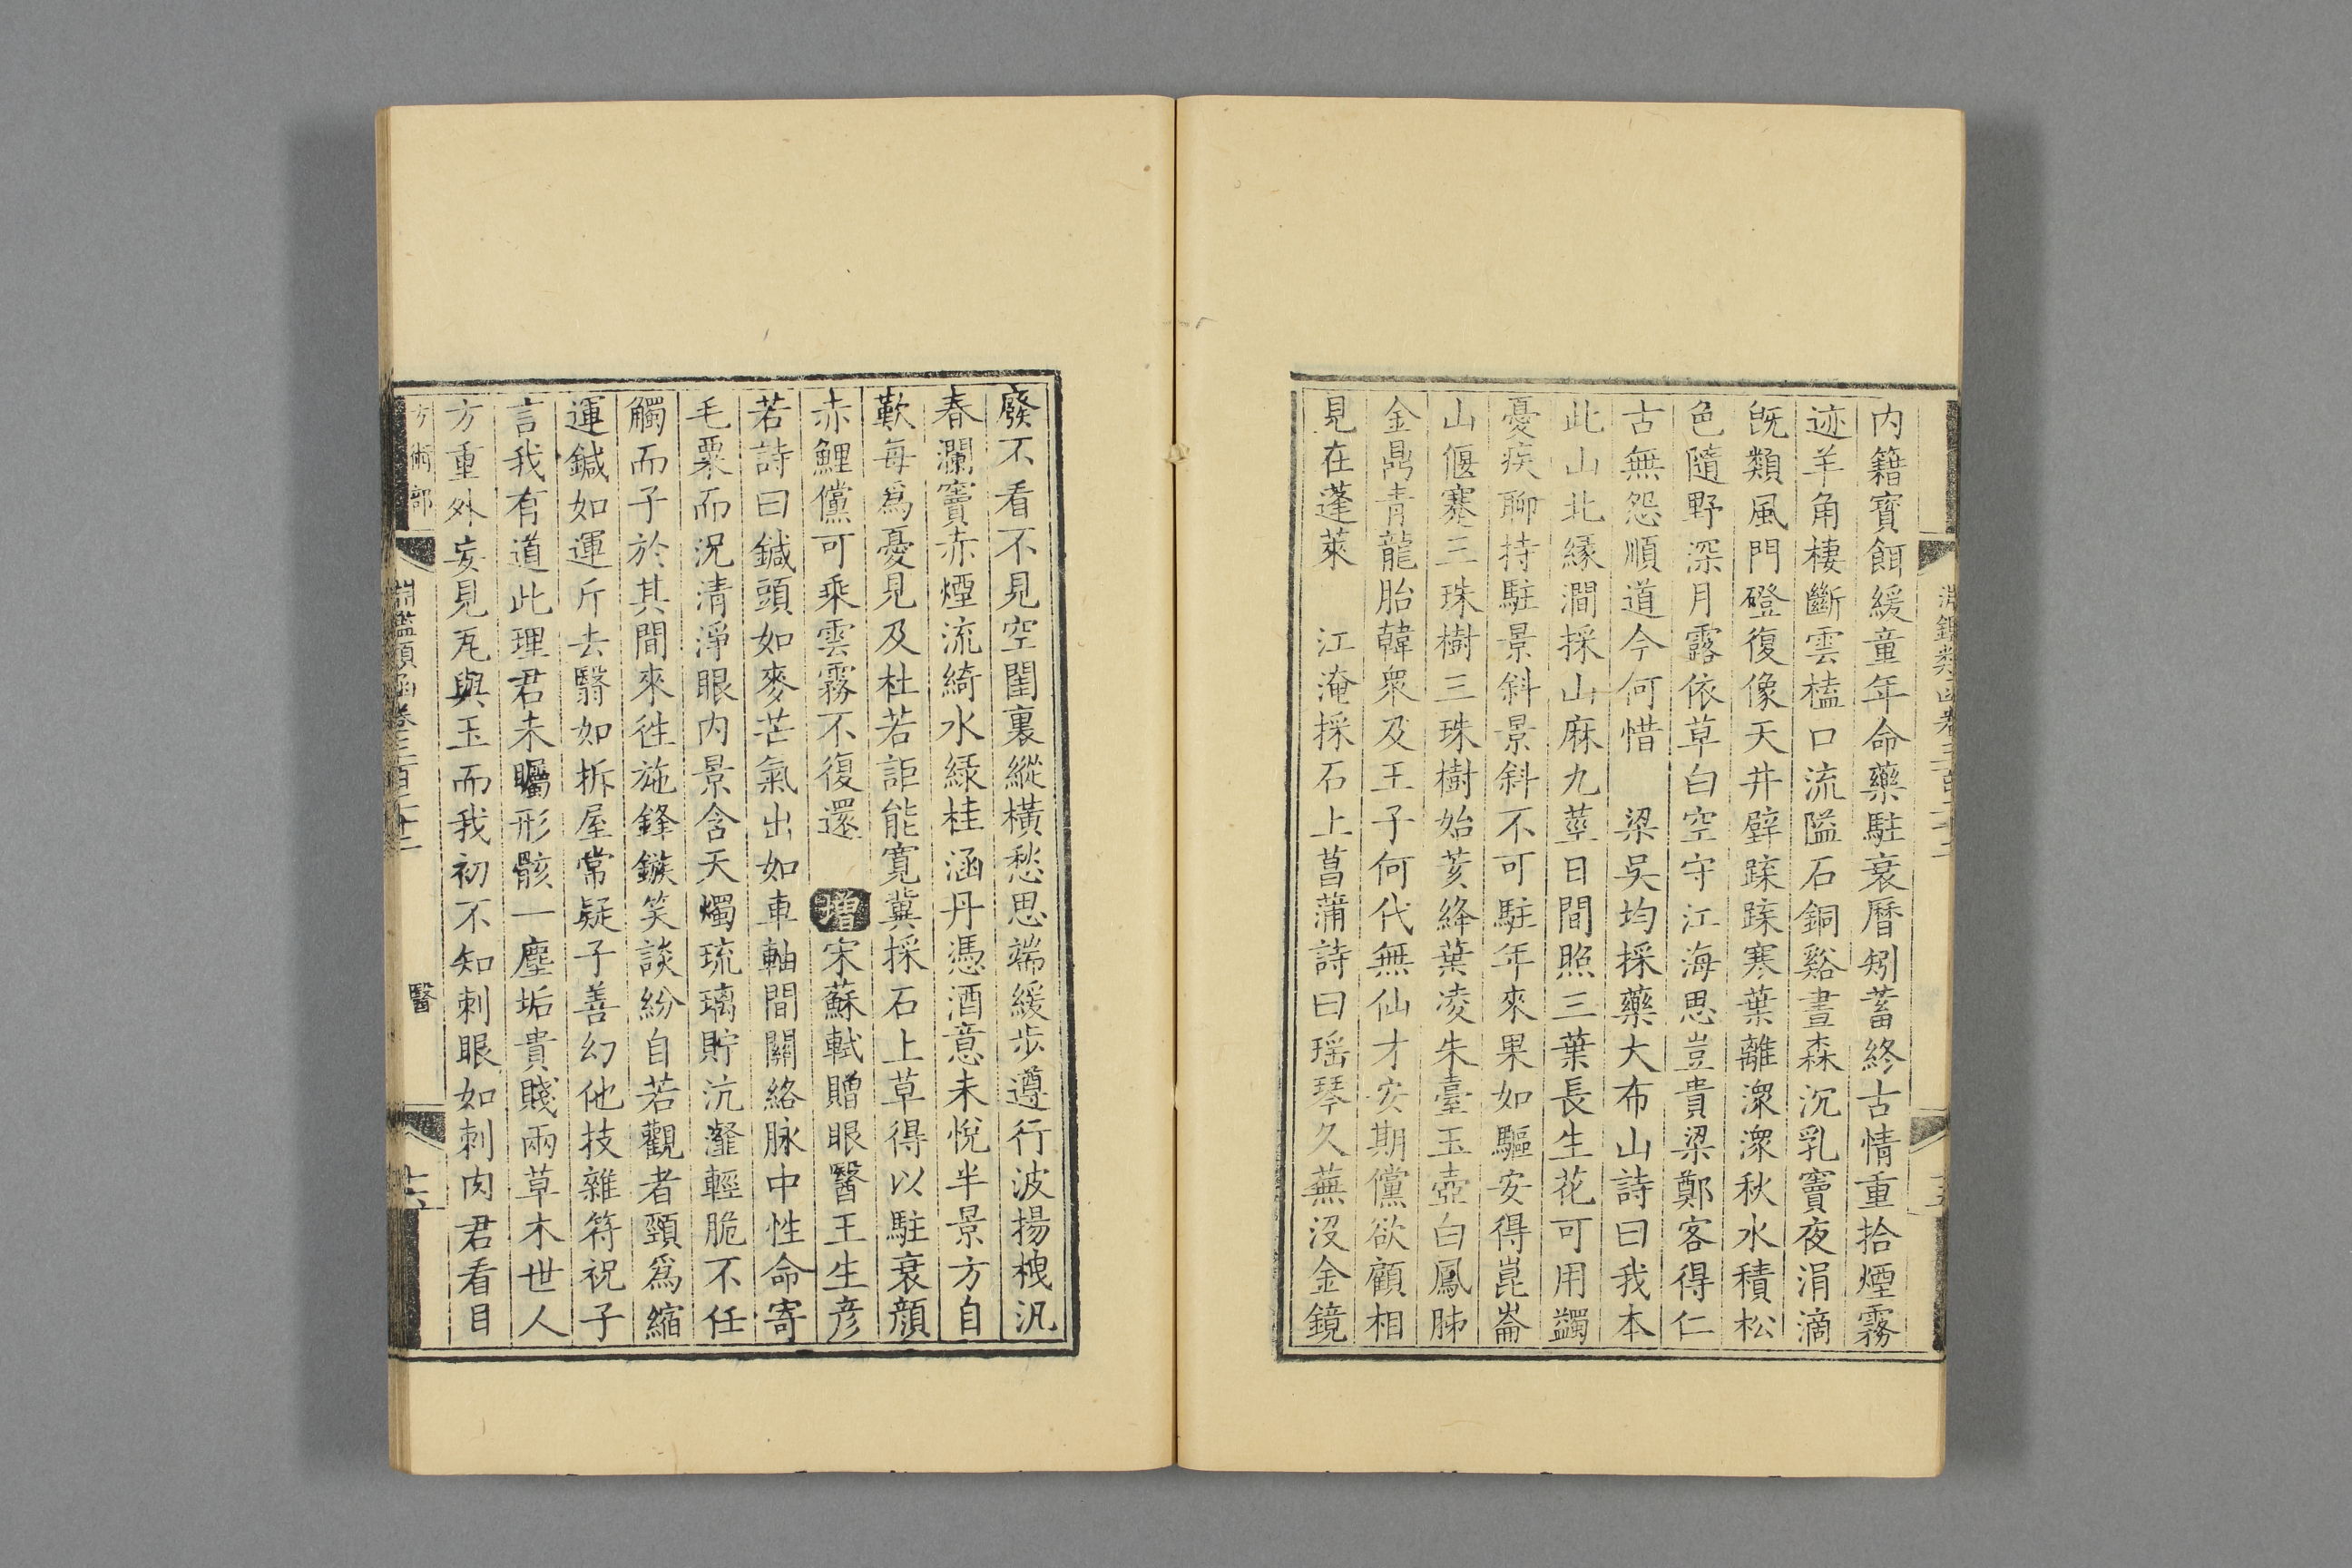 內籍寳餌緩童年命藥駐衰曆矧蓄終古情重拾煙霧
迹羊角棲斷雲榼口流隘石銅谿晝森沉乳竇夜涓滴
旣類風門磴復像天井壁踈踈寒葉離潨潨秋水積松
色隨野深月露依草白空守江海思豈貴梁鄭客得仁
古無怨順道今何惜　梁吳均採藥大布山詩曰我本
此山北緣澗採山麻九莖日間照三葉長生花可用蠲
憂疾聊持駐景斜景斜不可駐年來果如驅安得崑崙
山偃蹇三珠樹三珠樹始荄絳葉凌朱臺玉壺白鳳肺
金鼎青龍胎韓衆及王子何代無仙才安期儻欲顧相
見在蓬萊　江淹採石上菖蒲詩曰瑶琴久蕪沒金鏡
十五
廢不看不見空閨裏縱橫愁思端緩步遵行波揚栧汎
春瀾竇赤煙流綺水綠桂涵丹憑酒意未悅半景方自
歎每爲憂見及杜若詎能寬冀採石上草得以駐衰顏
赤鯉儻可乘雲霧不復還　增宋蘇軾贈眼醫王生彥
若詩曰鍼頭如麥芒氣出如車軸間關絡脉中性命寄
毛粟而況清淨眼內景含天燭琉璃貯沆瀣輕脆不任
觸而子於其間來徃施鋒鏃笑談紛自若觀者頸爲縮
運鍼如運斤去翳如拆屋常疑子善幻他技雜符祝子
言我有道此理君未矚形骸一塵垢貴賤兩草木世人
方重外妄見瓦與玉而我初不知刺眼如刺肉君看目
方術部　淵鑑類函卷三百二十二　醫　十六